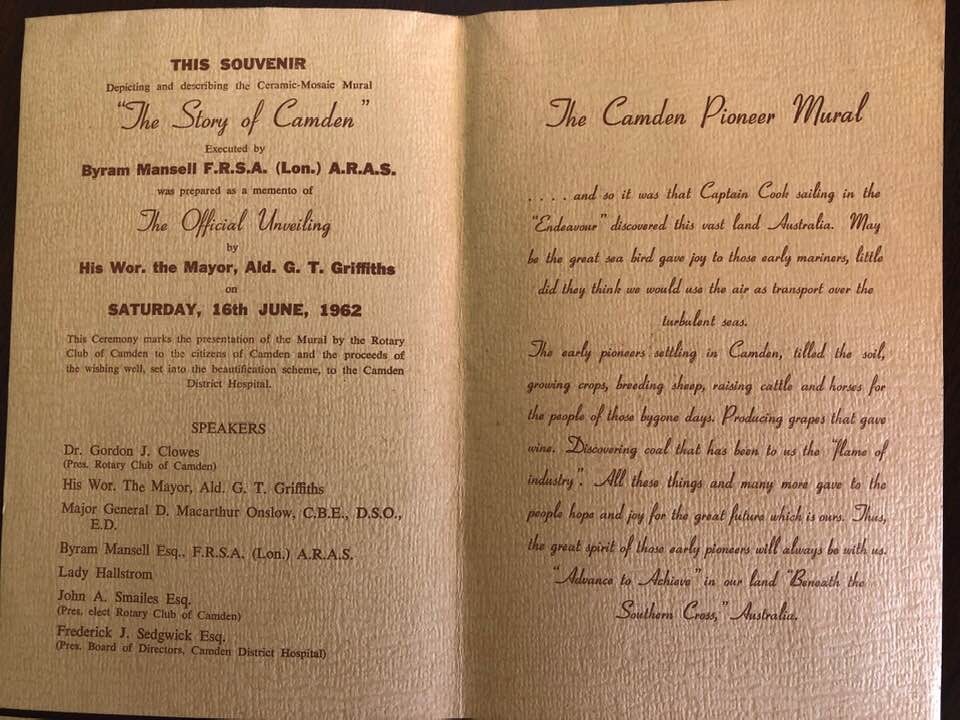 THIS SOUVENIR
Depicting and describing the Ceramic-Mosaic Mural
"The Story of Camden"
Executed by
Byram Mansell F.R.S.A. (Lon.) A.R.A.S.
was prepared as a memento of
The Official Unveiling
by
His Wor. the Mayor, Ald. G. T. Griffiths
on
SATURDAY, 16th JUNE, 1962
This Ceremony marks the presentation of the Mural by the Rotary
Club of Camden to the citizens of Camden and the proceeds of
the wishing well, set into the beautification scheme, to the Camden
District Hospital.
SPEAKERS
Dr. Gordon J. Clowes
(Pres. Rotary Club of Camden)
His Wor. The Mayor, Ald. G. T. Griffiths
Major General D. Macarthur Onslow, C.B.E., D.S.O.,
E.D.
Byram Mansell Esq., F.R.S.A. (Lon.) A.R.A.S.
Lady Hallstrom
John A. Smailes Esq.
(Pres. elect Rotary Club of Camden)
Frederick J. Sedgwick Esq.
(Pres. Board of Directors, Camden District Hospital)
The Camden Pioneer Mural
. . . . and so it was that Captain Cook sailing in the
"Endeavour" discovered this vast land Australia. May
be the great sea bird gave joy to those early mariners, little
did they think we would use the air as transport over the
turbulent seas.
The early pioneers settling in Camden, tilled the soil,
growing crops, breeding sheep, raising cattle and horses for
the people of those bygone days. Producing grapes that gave
wine. Discovering coal that has been to us the "flame of
industry". All these things and many more gave to the
people hope and joy for the great future which is ours. Thus,
the great spirit of those early pioneers will always be with us.
"Advance to Achieve" in our land "Beneath the
Southern Cross," Australia.